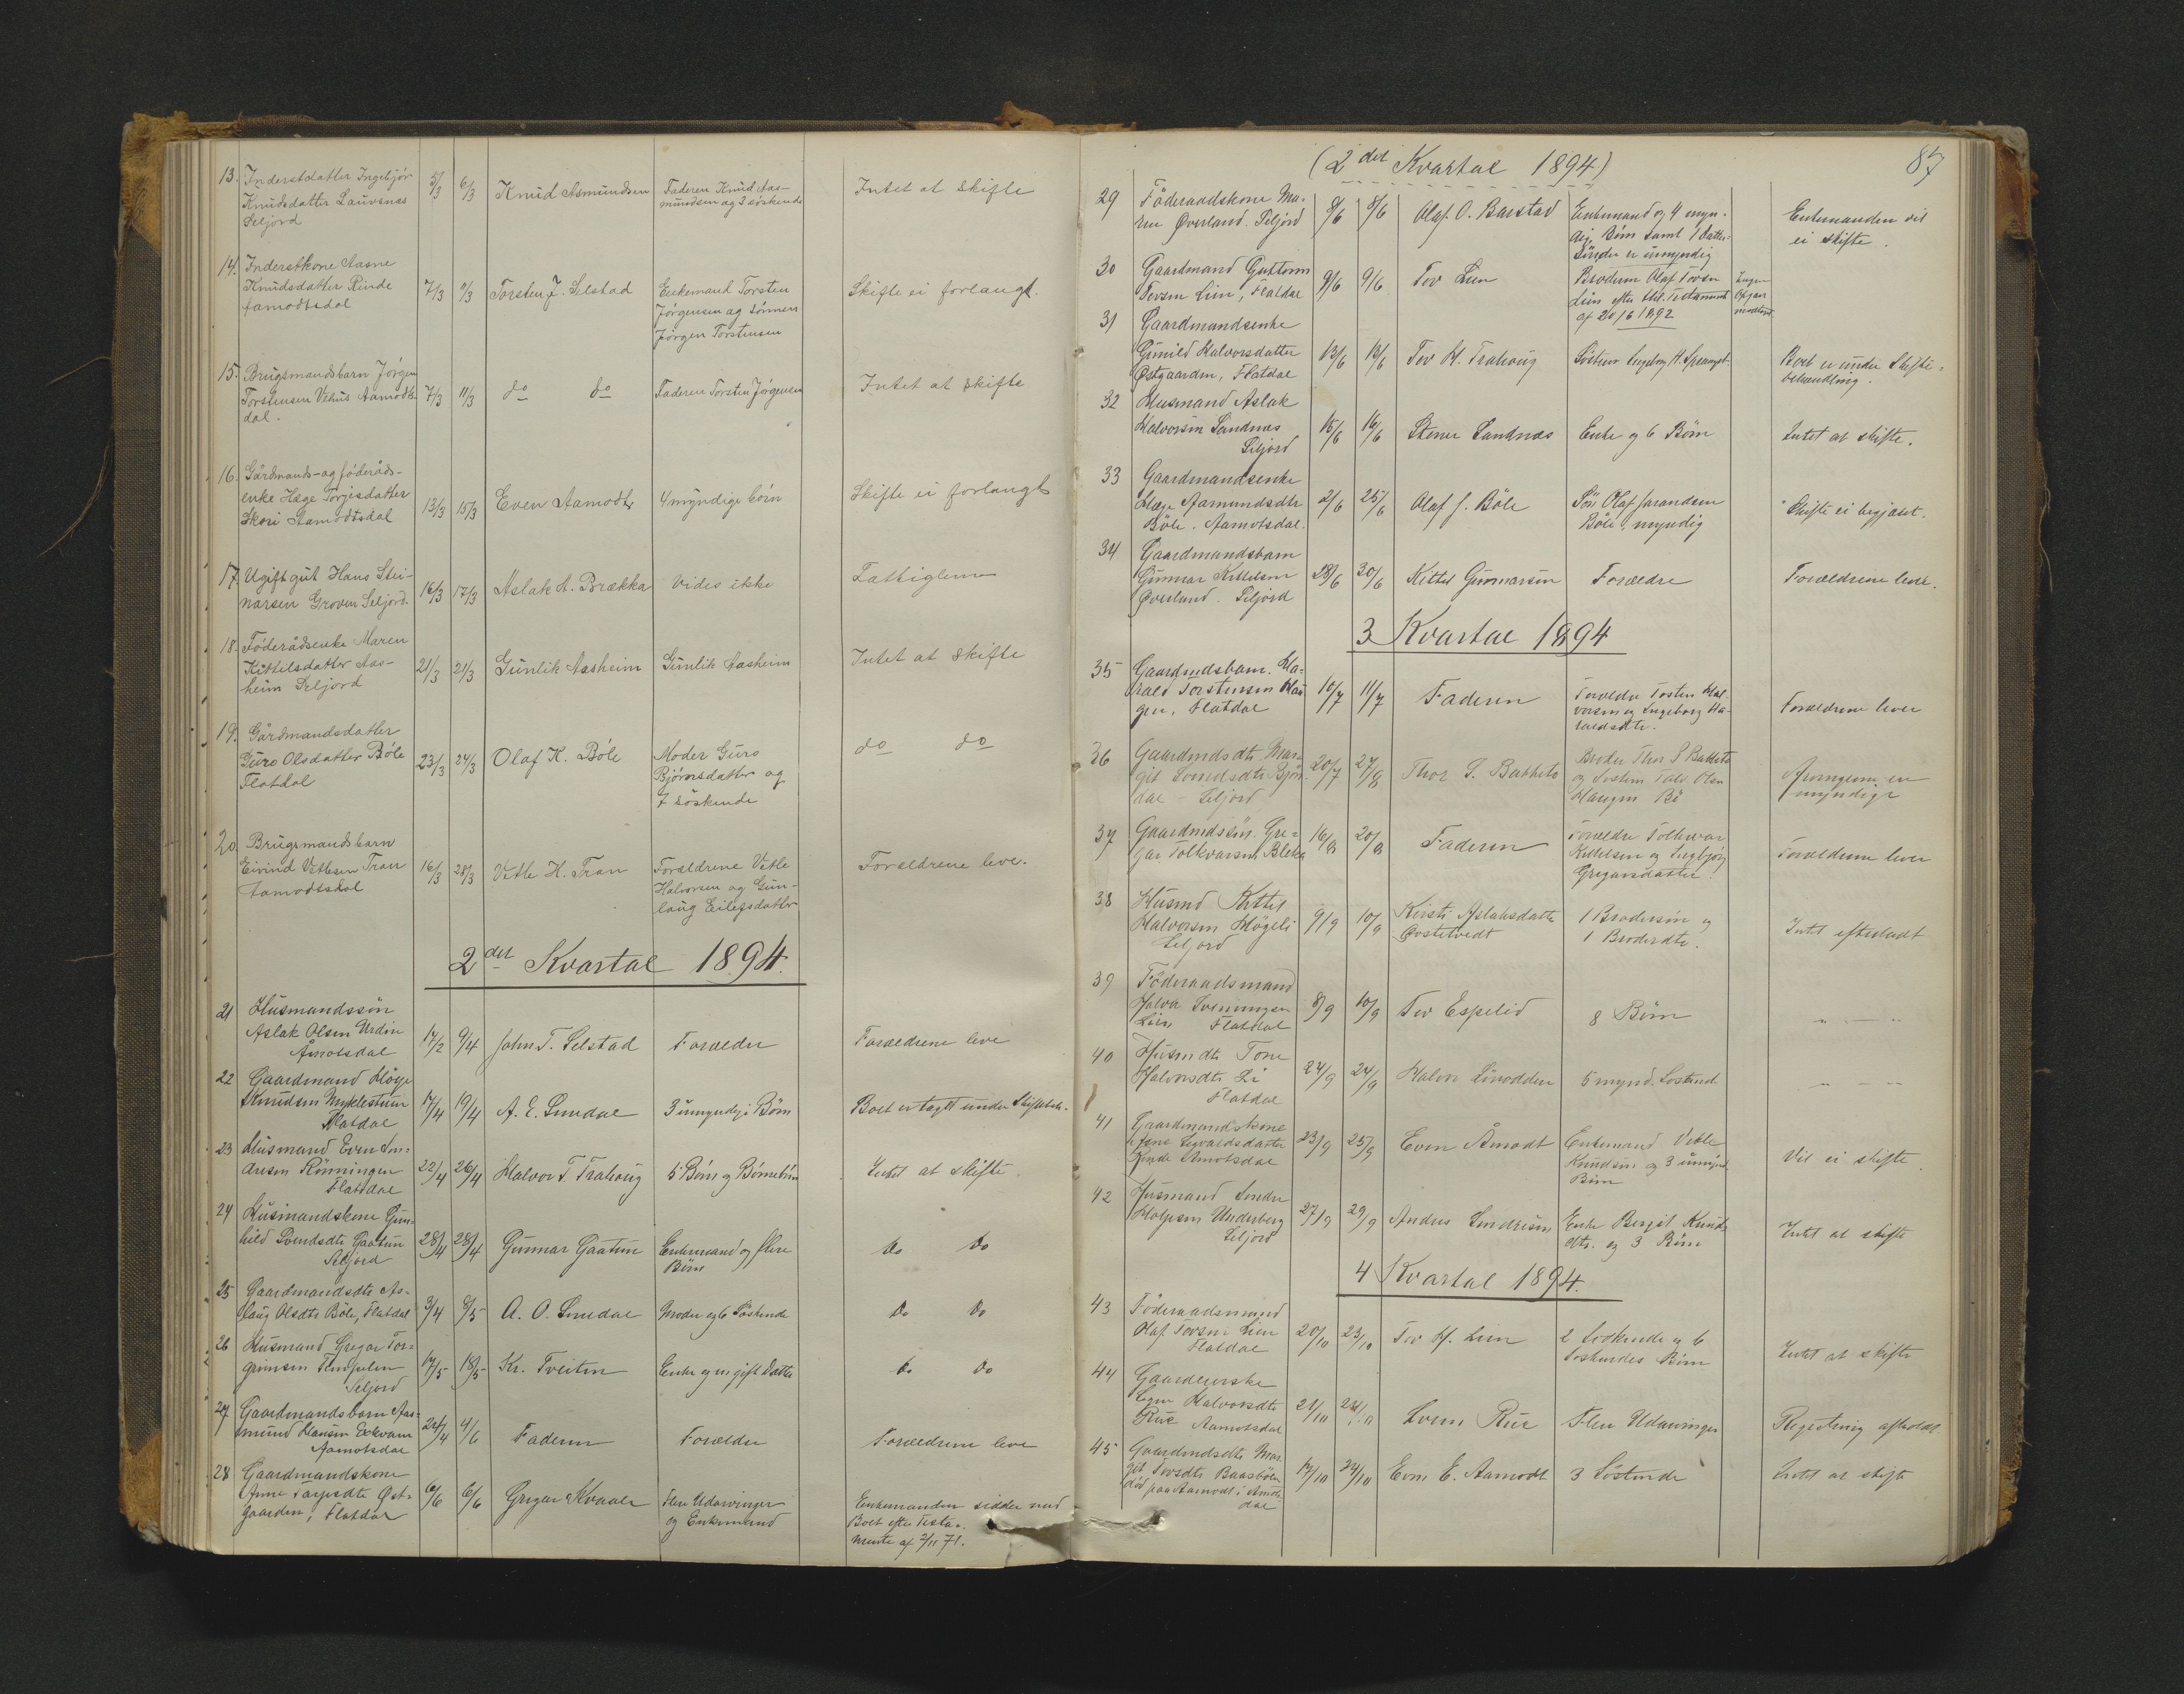 13. Inderstdatter Ingebjør
Knudsdatter Lauvsnes
Seljord
5/3 6/3 Knud Asmundsen
Faderen Knud Aas-
mundsen og 3 söskende
Intet at skifte
14. Inderstkone Aasne
Knudsdatter Rinde
Aamodtsdal
7/3 9/3 Torsten J. Selstad
Enkemand Torsten
Jörgensen og sönnen
Jörgen Torstensen
Skifte ei forlangt.
15. Brugsmandsbarn Jörgen
Torstensen Vehus Aamodts-
dal.
7/3 11/3 do do
Faderen Torsten Jörgensen
Intet at skifte
16. Gårdmands- og föderåds-
enke Hæge Torjesdatter
Skori Aamodtsdal
13/3 15/3 Even Aamodt
4 myndige börn
Skifte ei forlangt
17. Ugift gut Hans Stei-
narsen Groven Seljord.
16/3 17/3 Aslak A. Brækka
Vides ikke
Fattiglem
18. Föderådsenke Maren
Kittilsdatter Aas-
heim Seljord
21/3 21/3 Gunlik Aasheim
Gunlik Aasheim
Intet at skifte
19. Gårdmandsdatter
Guro Olsdatter Böle
Flatdal
23/3 24/3 Olaf K. Böle
Moder Guro
Björnsdatter og
7 söskende
do do
20. Brugsmandsbarn
Eivind Vetlesen Tran
Aamodtsdal
16/3 28/3 Vetle H. Tran
Forældrene Vetle
Halvorsen og Gun-
laug Eilefsdatter
Forældrene leve.
2det Kvartal 1894.
21 Husmandssön
Aslak Olsen Urdin
Åmotsdal
17/2 9/4 John T. Selstad
Forældre
Forældrene leve
22 Gaardmand Höye
Knudsen Myklestuen
Flatdal
17/4 19/4 A. E. Smedal
3 umyndige Börn
Boet er tagt under Skiftebeh.
23 Husmand Even An-
dresen Rönningen
Flatdal
22/4 26/4 Halvor T. Trahoug
5 Börn og Börnebörn
Intet at skifte.
24 Husmandskone Gun-
hild Svendsdtr Gaatun
Seljord
28/4 28/4 Gunnar Gaatun
Enkemand og flere
Börn
do do
25 Gaardmandsdtr As-
laug Olsdtr Böle, Flatdal
3/4 8/5 A. O. Smedal
Moder og 6 Söskende
do do
26 Husmand Gregar Tor-
grimsen
Seljord
17/5 18/5 Kr. Tveiten
Enke og en gift Datter
do do
27 Gaardmandsbarn Aas-
mund Hansen Eekvam
Aamotsdal
24/4 4/6 Faderen
Forældre
Forældrene leve
28 Gaardmandskone
Anne Tarjesdtr Öst-
gaarden, Flatdal
6/6 6/6 Gregar Kvaale
Flere Udarvinger
og Enkemand
Enkemanden sidder med
Boet efter Testa-
mente af 2/11 71.
(2det Kvartal 1894)
87
29 Föderaadskone Ma-
ren Överland. Seljord
8/6 8/6 Olaf. O. Barstad
Enkemand og 4 myn-
dig Börn samt 1 Datter-
Sön der er umyndig
Enkemanden vil
ei skifte.
30 Gaardmand Guttorm
Tovsen Lien, Flatdal
9/6 9/6 Tov Lien
Broderen Olaf Tovsen
Lien efter Testament
af 20/6 1892
Ingen
31 Gaardmandsenke
Gunild Halvorsdatter
Östgaarden, Flatdal
13/6 13/6 Tov H. Trahoug
Sösteren Ingeborg H.
Boet er under Skifte-
behandling.
32 Husmand Aslak
Halvorsen Sandnæs
Seljord
15/6 16/6 Stener Sandnæs
Enke og 6 Börn
Intet at skifte.
33 Gaardmandsenke
Hæge Aamundsdtr
Böle. Aamotsdal.
2/6 25/6 Olaf J. Böle
Sön Olaf Jarandsen
Böle, myndig
Skifte ei begjæret.
34 Gaardmandsbarn
Gunnar Kittelsen
Överland. Seljord
28/6 30/6 Kittel Gunnarsen
Forældre
Forældrene lever.
3 Kvartal 1894
35 Gaardmdsbarn. Ha-
rald Torstensen Hau
gen, Flatdal
10/7 11/7 Faderen
Forældre Tosten Hal-
vorsen og Ingeborg Ha-
raldsdtr.
Forældrene lever
36 Gaardmdsdtr Mar-
git Svendsdtr Björn-
dal - Seljord
20/7 27/8 Thor S. Bakketo
Broder Thor S Bakketo
og Söstren Talv. Olsen
Haugen Bö
Arvingerne ere
myndige
37 Gaardmdssön. Gre-
gar Folkvarsen Bleka
16/8 20/8 Faderen
Forældre Folkvar
Kittelsen og Ingbjörg
Gregarsdatter.
Forældrene lever
38 Husmd Kittel
Halvorsen Högeli
Seljord
9/9 10/9 Kirsti Aslaksdatter
Övstetvedt
1 Brodersön og
1 Broderdtr.
Intet efterladt
39 Föderaadsmand
Halvor Sveinungsen
Lien Flatdal
8/9 10/9 Tov Espelid
8 Börn
" — " — "
40 Husmdtr Tone
Halvorsdtr Li
Flatdal
24/9 24/9 Halvor Linodden
5 mynd. Söskend.
" — " — "
41 Gaardmandskone
Sigvaldsdatter
Rinde Åmotsdal
23/9 25/9 Even Åmodt
Enkemand Vetle
Knudsen og 3 umynd
Börn
Vil ei skifte.
42 Husmand Sondre
Holjesen Underberg
Seljord
27/9 29/9 Andres Sondresen
Enke Bergit Knuds
dtr. og 3 Börn
Intet at skifte
4 Kvartal 1894.
43 Föderaadsmand
Olaf Tovsen Lien
Flatdal
20/10 23/10 Tov H. Lien
2 Södskende og 6
Söskendes Börn
Intet at skifte
44 Gaardeierske
Halvorsdtr
Rue Aamotsdal
21/10 24/10 Svein Rue
Flere Udarvinger
Registrering afholdt.
45 Gaardmdsdtr Mar-
git Tovsdtr Baasböen
död paa Aamodt i Amots-
dal
17/10 24/10 Even E. Aamodt
3 Söskende
Intet at skifte